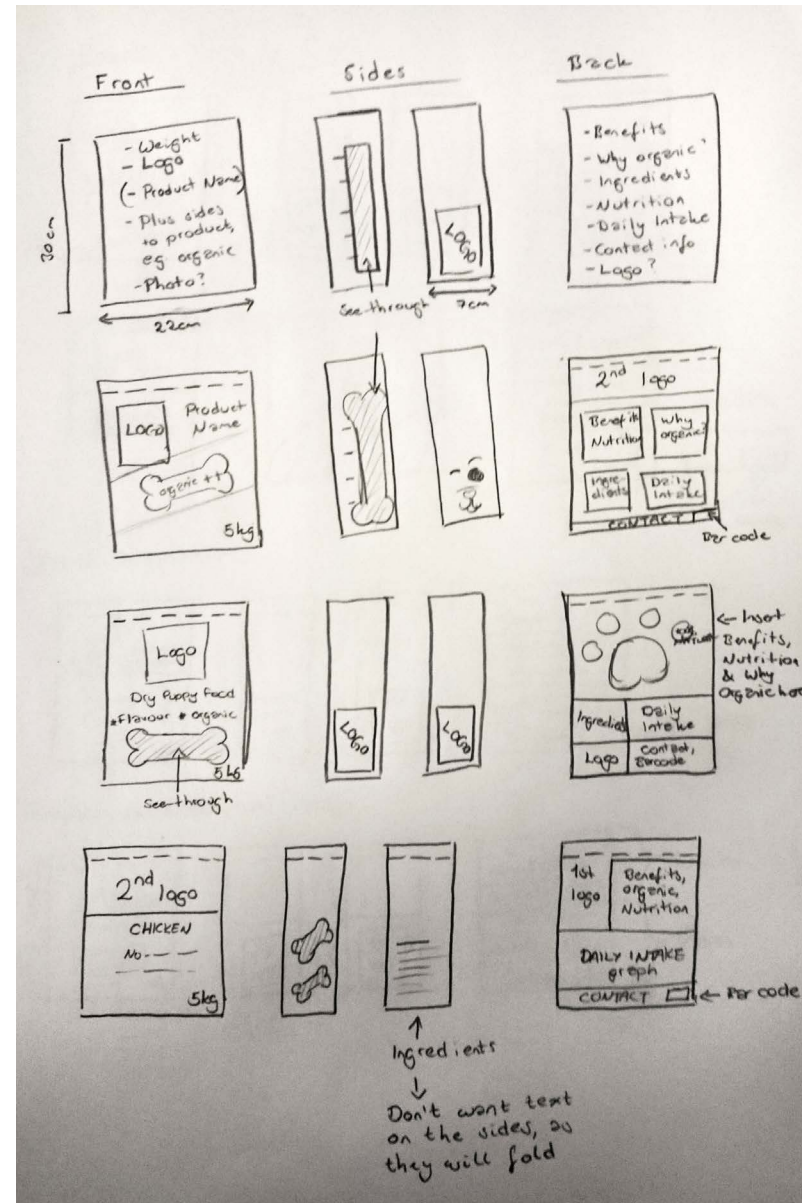 Front
Sides
Back
30cm
- Weight
- Logo
(- Product Name)
- Plus sides
to product,
eg organic
- Photo?
22cm
LOGO
See-through
7cm
- Benefits
- Why organic?
- Ingredients
- Nutrition
- Daily Intake
- Contact info
- Logo?
LOGO
Product
Name
organic ++
5kg
2nd logo
Benefits
Nutrition
Why
organic?
Ingre-
dients
Daily
Intake
CONTACT
Bar code
Logo
Dry Puppy Food
*Flavour * organic
5kg
See-through
LOGO
LOGO
← Insert
Benefits,
Nutrition
& Why
Organic here
Ingredients
Daily
Intake
Logo
Contact,
Barcode
2nd logo
CHICKEN
No
5kg
Ingredients
Don't want text
on the sides, as
they will fold
1st
logo
Benefits,
organic,
Nutrition
DAILY INTAKE
graph
CONTACT
← Bar code